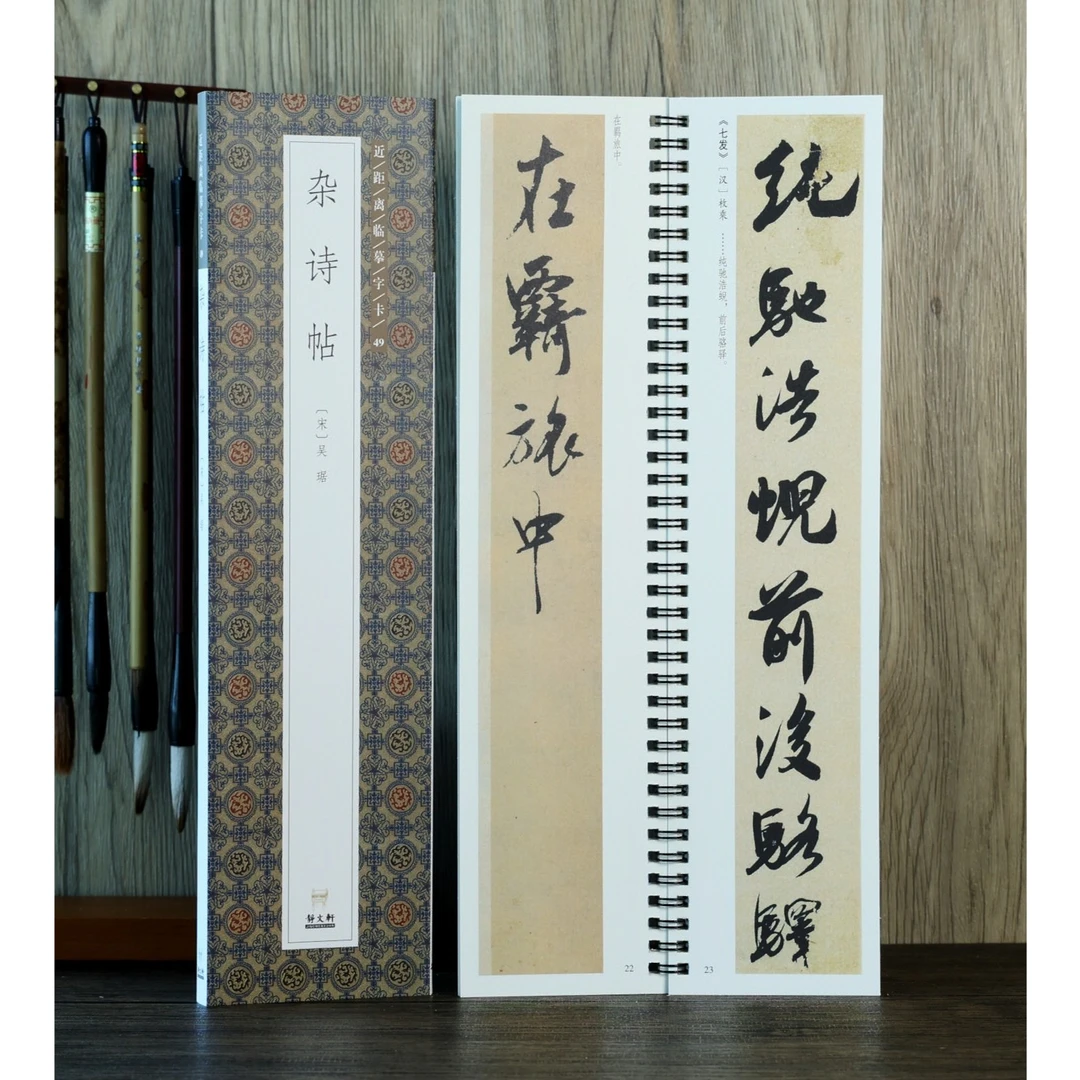 杂诗帖
〔宋〕吴琚
近/距/离/临/摹/字/卡/ 49
静文轩
在羁旅中
在羁旅中。
22
《七发》〔汉〕枚乘 ……纯驰浩蜺，前后骆驿。
純馳浩蜺前後駱驛
23